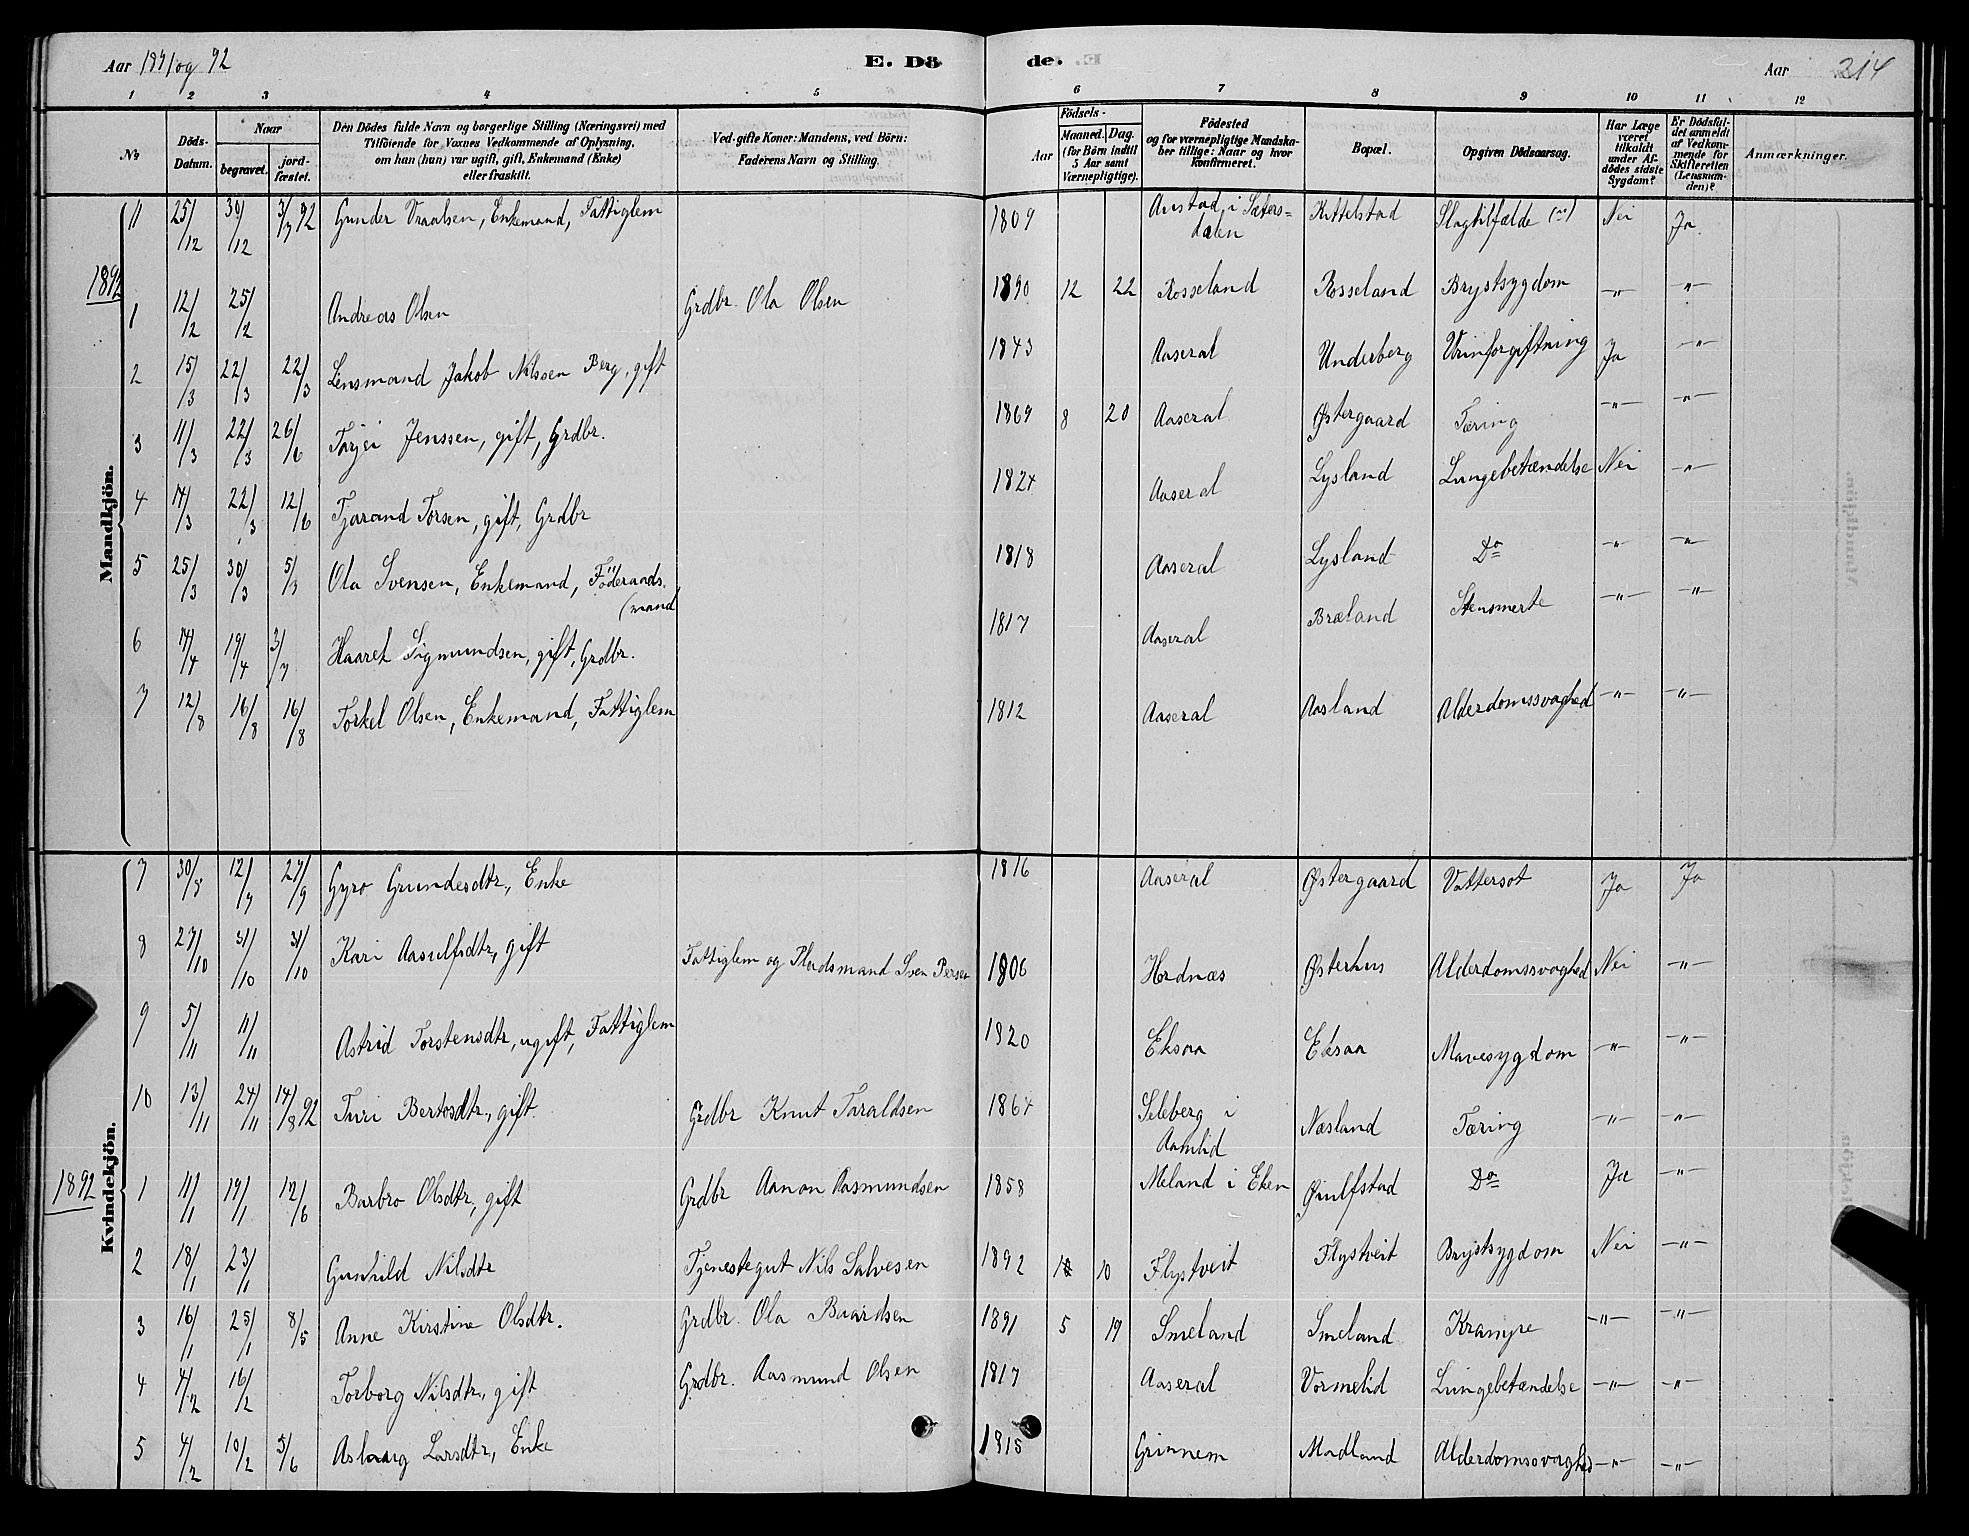 Aar 1891 og 92 E. Dö de. Aar 214
1 2 3 4 5 6 7 8 9 10 11 12
No Döds-Datum. Naar begravet. jordfæstet. Den Dödes fulde Navn og borgerlige Stilling (Næringsvei) med Tilföiende for Voxnes Vedkommende af Oplysning, om han (hun) var ugift, gift, Enkemand (Enke) eller fraskilt. Ved gifte Koner: Mandens, ved Börn: Faderens Navn og Stilling. Aar Födsels- Maaned. Dag. (for Börn indtil 5 Aar samt Værnepligtige). Födested og for værnepligtige Mandskaber tillige: Naar og hvor konfirmeret. Bopæl. Opgiven Dödsaarsag. Har Læge været tilkaldt under Afdödes sidste Sygdom? Er Dödsfaldet anmeldt af Vedkommende for Skifteretten (Lensmanden)? Anmærkninger.
Mandkjön.
11 25/12 30/12 3/7 92 Gunder Vraalsen, Enkemand, Fattiglem 1809 Austad i Sætersdalen Kittelstad Slagtilfælde Nei Ja
1892
1 12/2 25/2 Andreas Olsen Grdbr. Ola Olsen 1890 12 22 Rosseland Rosseland Brystsygdom -"- -"-
2 15/3 22/3 22/3 Lensmand Jakob Nilssen Berg, gift 1843 Aaseral Underberg Urinforgiftning Ja -"-
3 11/3 22/3 26/6 Torjei Jenssen, gift, Grdbr. 1869 8 20 Aaseral Østergaard Tæring -"- -"-
4 14/3 22/3 12/6 Tjarand Torsen, gift, Grdbr 1824 Aaseral Lysland Lungebetændelse Nei -"-
5 25/3 30/3 5/3 Ola Svensen, Enkemand, Föderaads(mand 1818 Aaseral Lysland Do -"- -"-
6 14/4 19/4 3/7 Haaret Sigmundsen, gift, Grdbr. 1817 Aaseral Bræland Stensmerte -"- -"-
7 12/8 16/8 16/8 Torkel Olsen, Enkemand, Fattiglem 1812 Aaseral Aasland Alderdomssvaghed -"- -"-
Kvindekjön.
7 30/8 12/9 27/9 Gyro Gundesdtr, Enke 1816 Aaseral Østergaard Vattersot Ja Ja
8 27/10 31/10 31/10 Kari Aasulfsdtr, gift Fattiglem og Pladsmand Sven Persen 1806 Hordnæs Østerhus Alderdomssvaghed Nei -"-
9 5/11 11/11 Astrid Torstensdtr, ugift, Fattiglem 1820 Eksaa Eksaa Mavesygdom -"- -"-
10 13/11 24/11 14/8 92 Turi Bertosdtr., gift Grdbr Knut Taraldsen 1864 Seleberg i Aamlid Næsland Tæring -"- -"-
1892
1 11/1 19/1 12/6 Barbro Olsdtr, gift Grdbr Aanon Aasmundsen 1858 Meland i Eken Øiulfstad Do Ja -"-
2 18/1 23/1 Gunhild Nilsdtr Tjenestegut Nils Salvesen 1892 1 10 Flystveit Flystveit Brystsygdom Nei -"-
3 16/1 25/1 8/5 Anne Kirstine Olsdtr. Grdbr. Ola Baardsen 1891 5 19 Smeland Smeland Krampe -"- -"-
4 4/2 16/2 Torborg Nilsdtr, gift Grdbr. Aasmund Olsen 1817 Aaseral Vormelid Lungebetændelse -"- -"-
5 4/2 10/2 5/6 Aslaug Larsdtr, Enke 1815 Grinnem Mordland Alderdomssvaghed -"- -"-